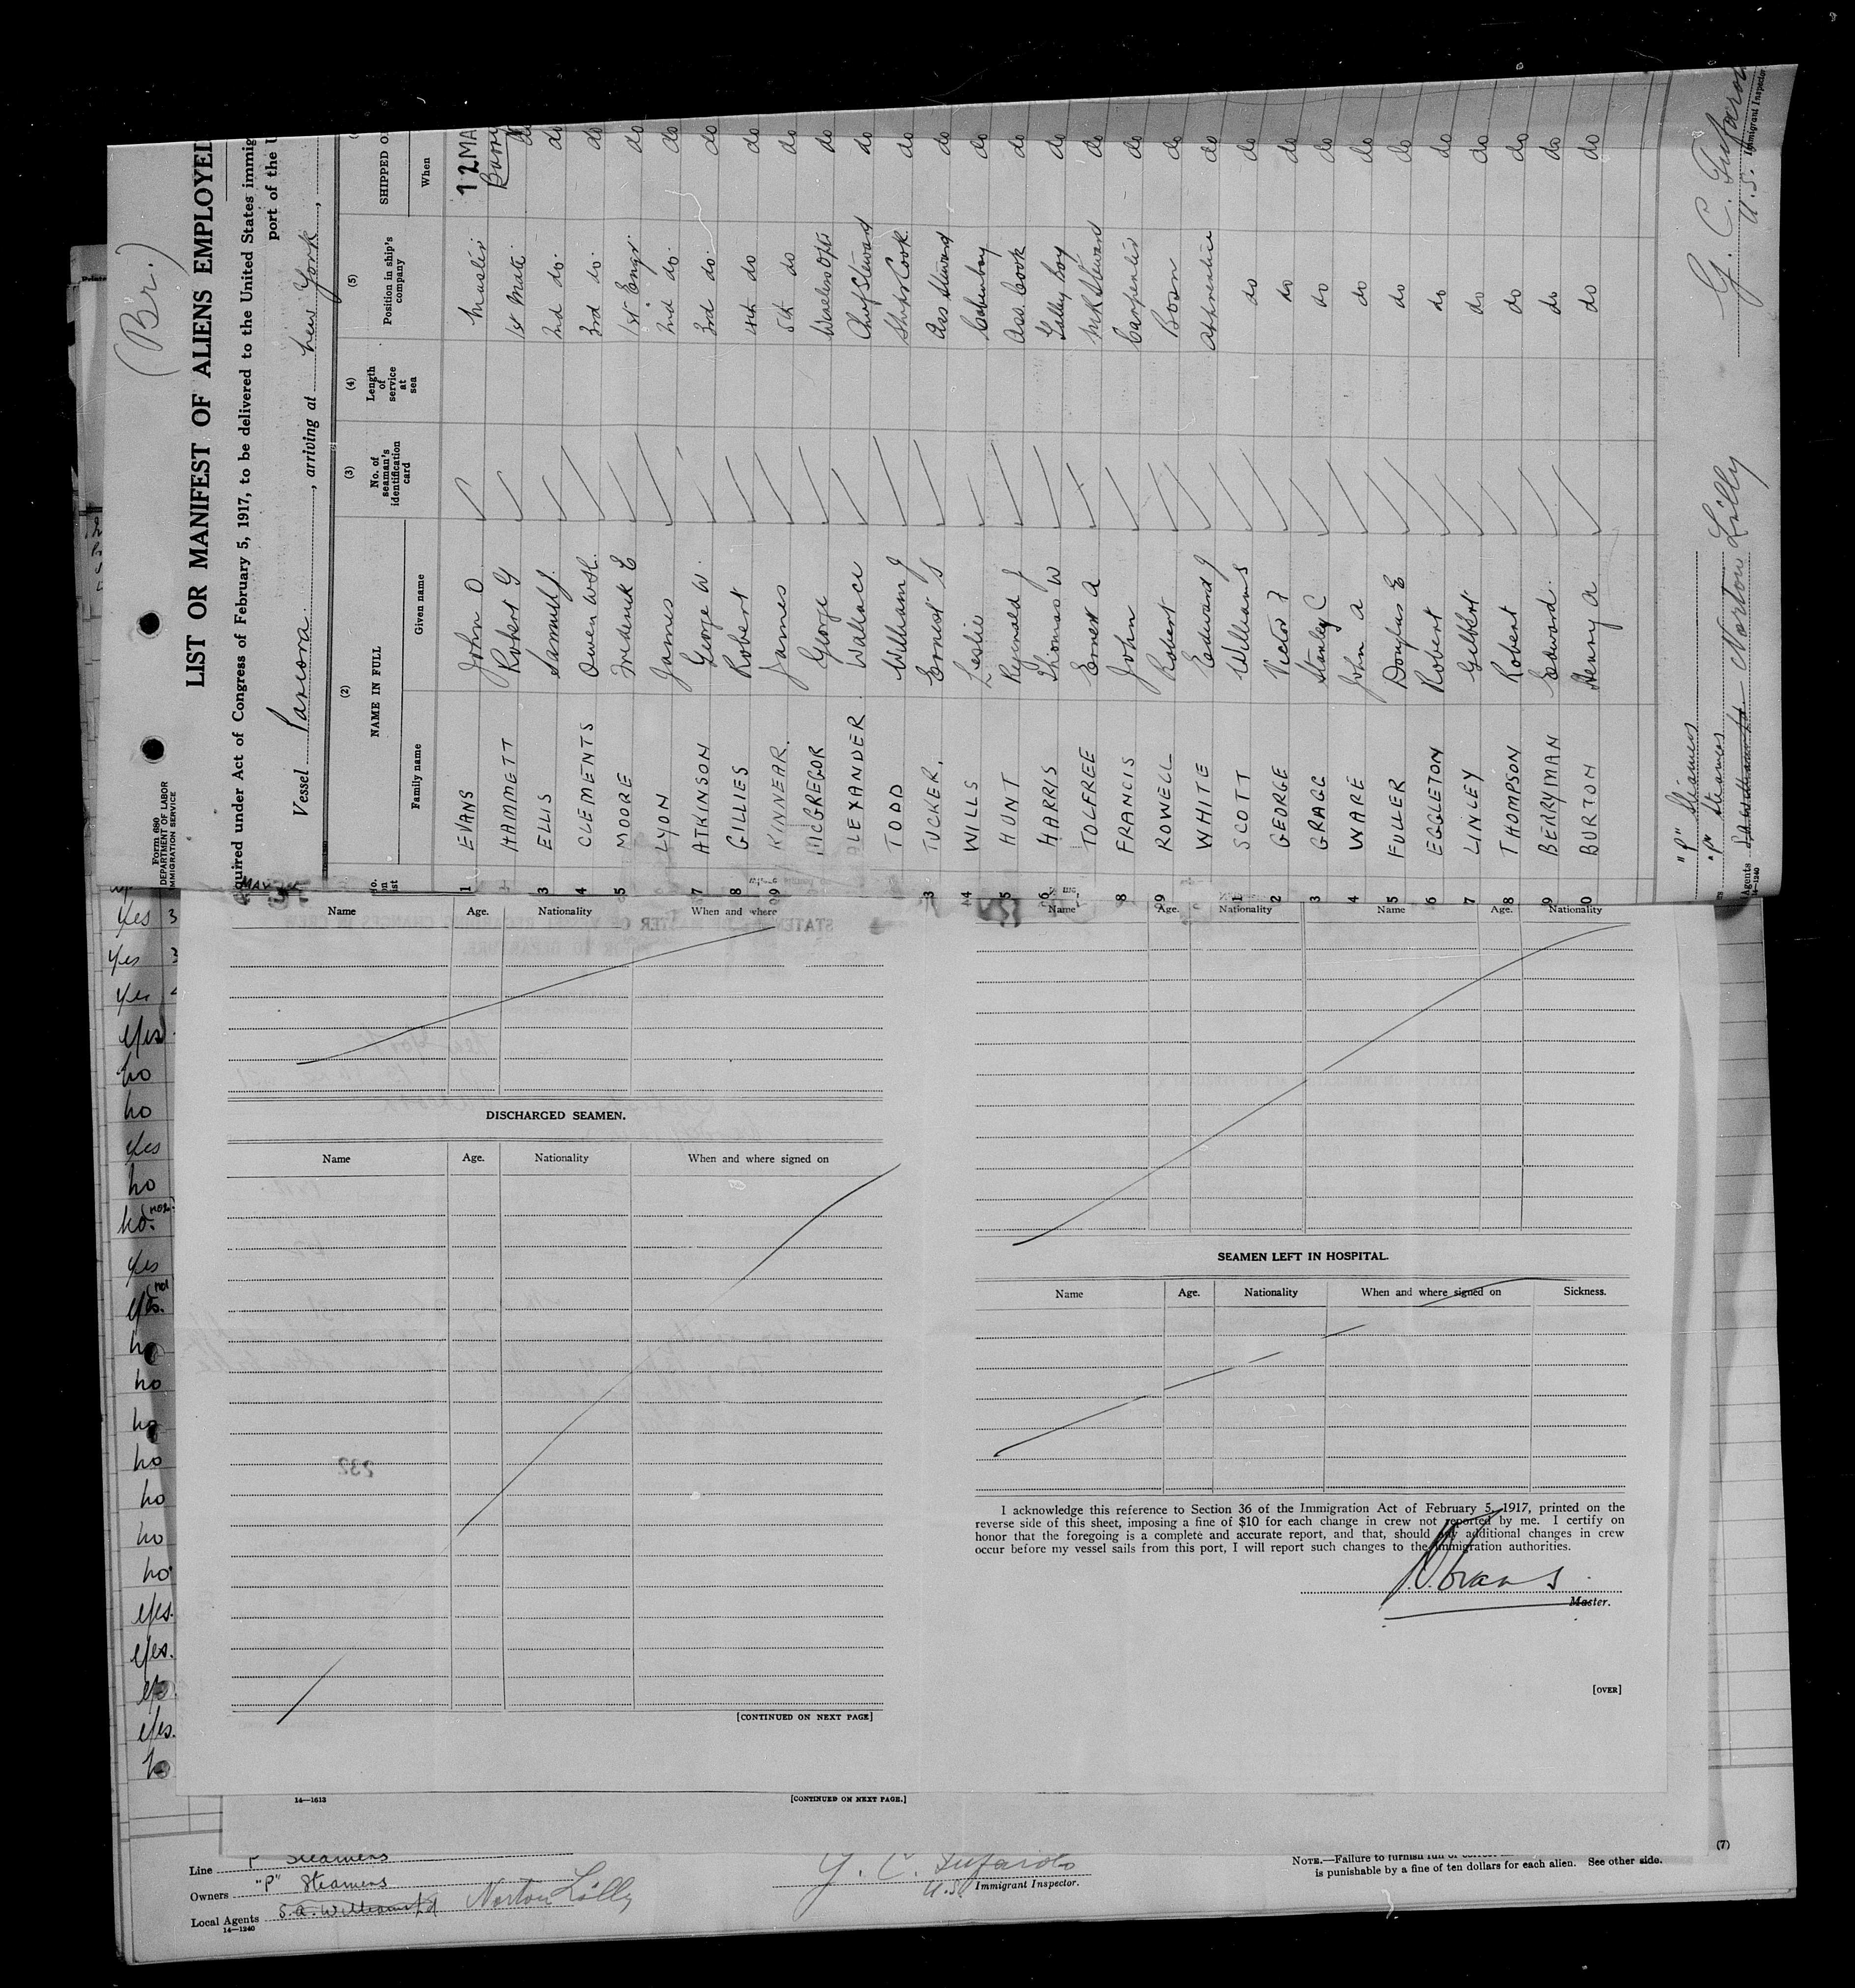 (Br.)
Form 680
DEPARTMENT OF LABOR
IMMIGRATION SERVICE
LIST OR MANIFEST OF ALIENS EMPLOYED
quired under Act of Congress of February 5, 1917, to be delivered to the United States immig
port of the U
Vessel , arriving at New York,
(2) (3) (4) (5)
NAME IN FULL No. of seaman's identification card Length of service at sea Position in ship's company SHIPPED O
Family name Given name When
1 EVANS John O Master 12 MA
HAMMETT Robert G 1st Mate do
3 ELLIS Samuel J. 2nd do. do
4 CLEMENTS Owen Wm. 3rd do. do
5 MOORE Frederick C 1st Engr. do
LYON James 2nd do. do
7 ATKINSON George W. 3rd do. do
8 GILLIES Robert 4th do do
9 KINNEAR. James 5th do do
McGREGOR George Wireless Optr do
ALEXANDER. Wallace Chief Steward do
TODD William J Ships Cook do
3 TUCKER. Ernest S Ass Steward do
4 WILLS Leslie Cabin boy do
5 HUNT Reginald J Ass. Cook do
6 HARRIS Thomas W Galley boy do
TOLFREE Ernest A Steward do
8 FRANCIS John Carpenter do
9 ROWELL Robert Bosn do
WHITE Edward J Apprentice do
1 SCOTT Williams do do
2 GEORGE Victor F do do
3 GRAGG Stanley C do do
4 WARE John A do do
5 FULLER Douglas E do do
6 EGGLETON Robert do do
7 LINLEY Gilbert do do
8 THOMPSON Robert do do
9 BERRYMAN Edward. do do
0 BURTON Henry A do do
"P" Steamers
"P" Steamers
Agents Norton Lilly
14-1240
G. C.
U.S. Immigrant Inspector
Yes 3
Yes 3
Yes
Yes
no
no
yes
no
no.
yes
yes.
no
no
no
no
no
no
no
yes.
yes.
yes.
yes.
no
Name Age. Nationality When and where
DISCHARGED SEAMEN.
Name Age. Nationality When and where signed on
232
[CONTINUED ON NEXT PAGE]
Name Age. Nationality Name Age. Nationality
SEAMEN LEFT IN HOSPITAL.
Name Age. Nationality When and where signed on Sickness.
I acknowledge this reference to Section 36 of the Immigration Act of February 5, 1917, printed on the
reverse side of this sheet, imposing a fine of $10 for each change in crew not reported by me. I certify on
honor that the foregoing is a complete and accurate report, and that, should any additional changes in crew
occur before my vessel sails from this port, I will report such changes to the immigration authorities.
Evans
Master.
[OVER]
14—1613
[CONTINUED ON NEXT PAGE.]
(7)
Line "P" Steamers
Owners "P" Steamers
Local Agents S.A. Williams Ltd Norton Lilly
14—1240
G. C.
U.S. Immigrant Inspector.
NOTE.—Failure to furnish full or correct
is punishable by a fine of ten dollars for each alien. See other side.